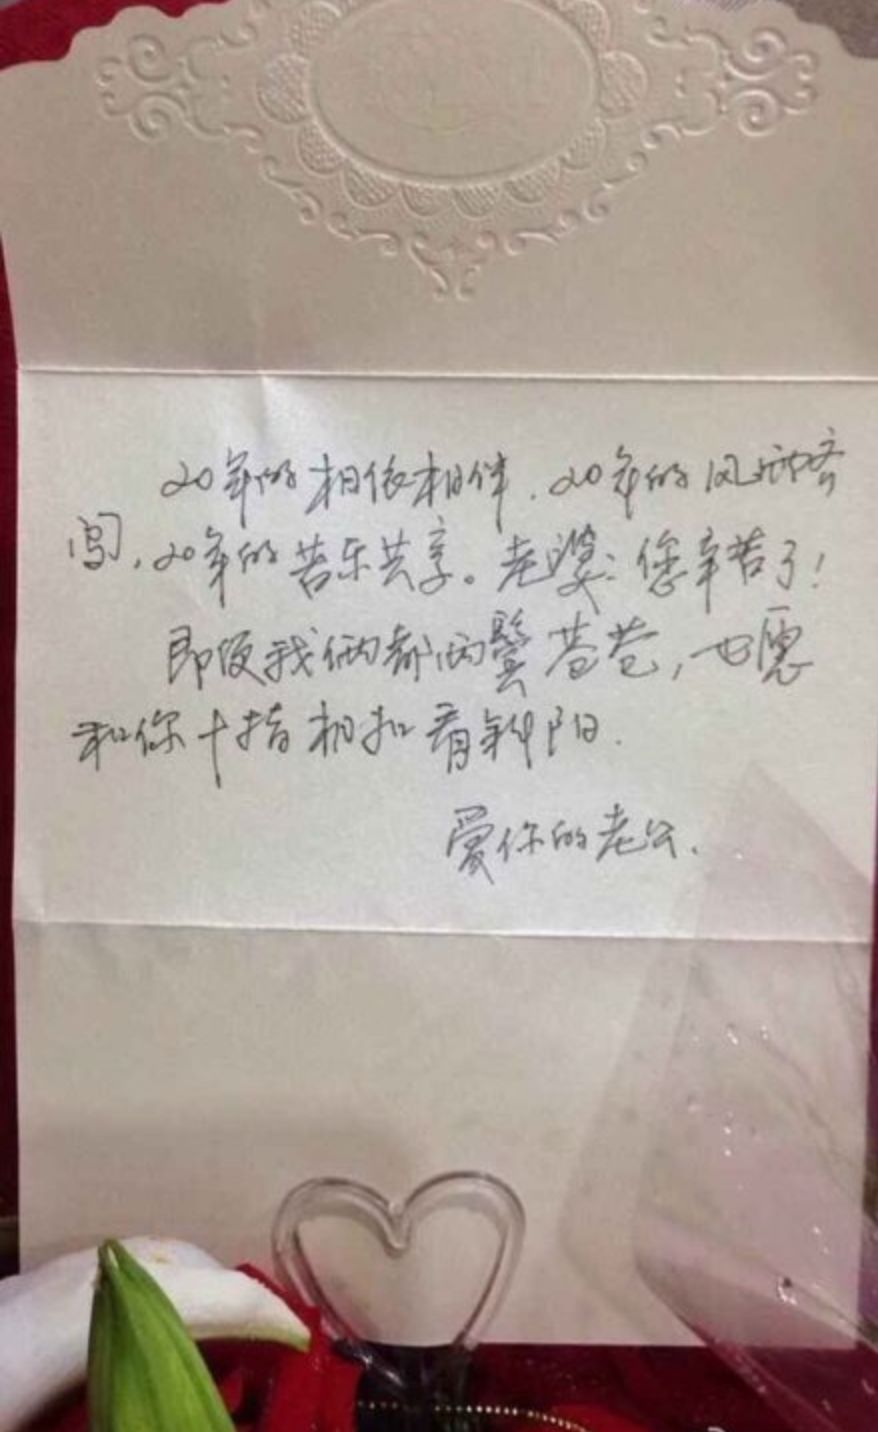 20年的相依相伴．20年的风雨齐
闯，20年的苦乐共享。老婆：您辛苦了！
即便我俩都两鬓苍苍，也愿
和你十指相扣看斜阳．
爱你的老公．